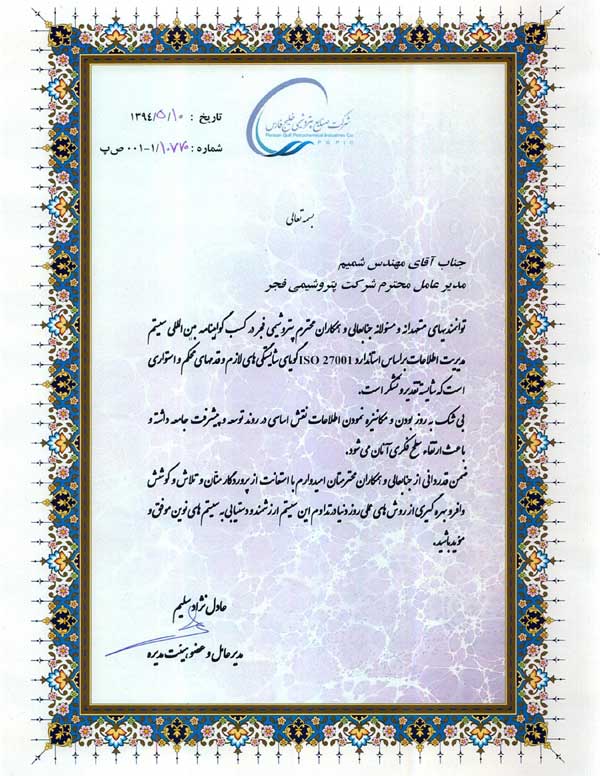 شرکت صنایع پتروشیمی خلیج فارس
Persian Gulf Petrochemical Industries Co
P G P I C
تاریخ : ۱۳۹۴/۵/۱۰
شماره : ۰۰۱-۱/۱۰۷۷۰ ص پ
بسمه تعالی
جناب آقای مهندس شمیم
مدیر عامل محترم شرکت پتروشیمی فجر
توانمندیهای متعهدانه و مسئولانه جنابعالی و همکاران محترم پتروشیمی فجر در کسب گواهینامه بین المللی سیستم
مدیریت اطلاعات بر اساس استاندارد ISO 27001 گویای شایستگی های لازم و قدمهای محکم و استواری
است که شایسته تقدیر و تشکر است.
بی شک به روز بودن و مکانیزه نمودن اطلاعات نقش اساسی در روند توسعه و پیشرفت جامعه داشته و
باعث ارتقاء سطح فکری آنان می شود.
ضمن قدردانی از جنابعالی و همکاران محترمتان امیدوارم با استعانت از پروردگار منّان و تلاش و کوشش
وافر و بهره گیری از روش های علمی روز دنیا در تداوم این سیستم ارزشمند و دستیابی به سیستم های نوین موفق و
موید باشید.
عادل نژاد سلیم
مدیر عامل و عضو هیئت مدیره